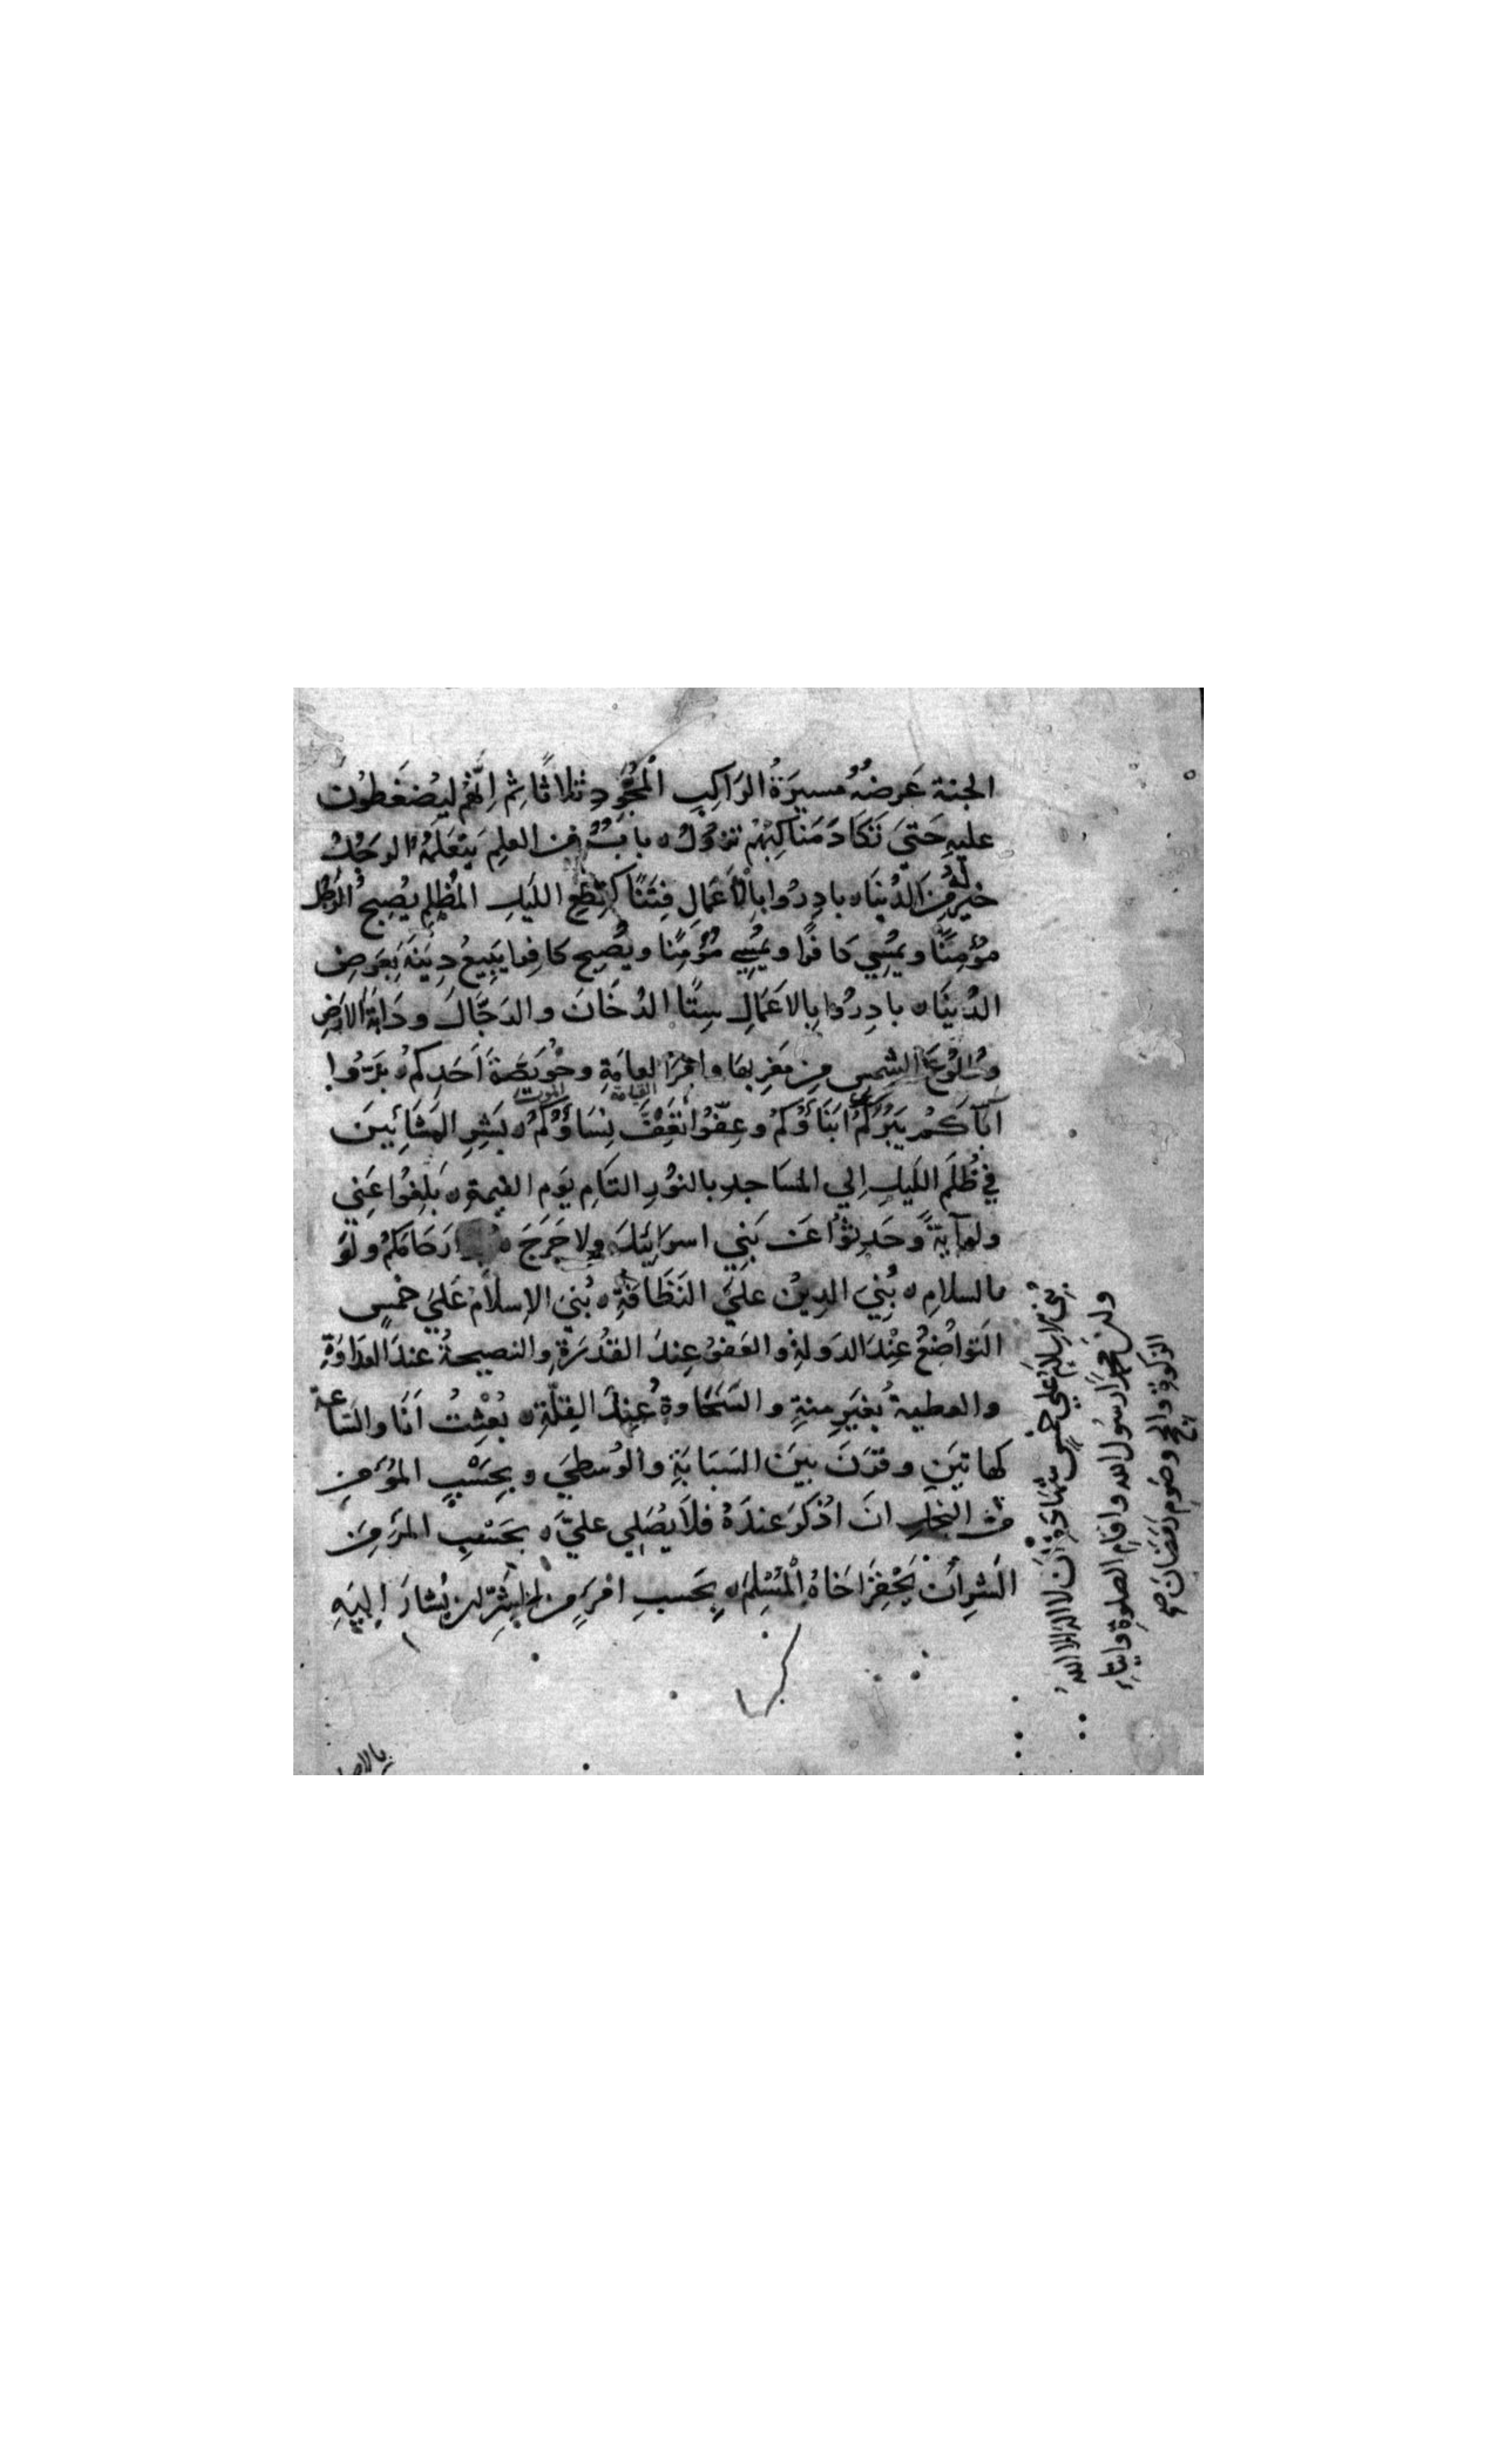 الجنة عَرضُهُ مسيرَةُ الرَاكِبِ الْمُجَوِّدِ ثلاثًا ثم اِنَّهُم ليُضغَطُونَ
عليهِ حَتىَ تَكَادَ مَنَاكِبُهُم تزُولُ ه بابٌ مِن العِلمِ يَتعَلَّمُهُ الرجُلُ
خيرٌ لَهُ مِنَ الدُنيَا ه بادِرُوا بِالاَعمَالِ فِتَنًا كَقِطَعِ الليَلِ المُظلِمِ يُصبِحُ الرَجُلُ
مؤمِنًا ويُمسِي كافرًا ويُمسِي مُؤمِنًا ويُصبِح كافِرا يَبِيعُ دِينَهُ بِعَرَضِ
الدُنيَا ه بادِرُوا بِالاَعمَالِ سِتًا الدُخَانَ والدَجَّالَ ودَابَةَ الاَرَضِ
وطُلُوعَ الشمسِ مِن مَغرِبِهَا واَمرَ العامَةِ وخُوَيصَّةَ اَحَدِكُم ه بَرُّوا
القيامة الموت
آبآكُم يَبَرُكُم اَبنَاؤُكُم وعِفّوُا تَعِفَّ نِسَاؤُكُم ه بَشِرِ المَشَائِينَ
فِي ظُلَمِ اللَيلِ اِلي المسَاجدِ بالنوُرِ التَامِ يَوم القيمةِ ه بَلِغُوا عَنِي
ولو آيةً وَحَدِثوُا عَن بَنِي اسرَائيَلَ ولا حَرَجَ ه ارَحَامَكُم ولَوَ
بالسلامِ ه بُنِيَ الدِينُ عليَ النَظَافَةِ ه بُنيَ الاِسلاَمُ عَليَ خمسٍ
التَواضُعُ عِنْدَ الدَولةِ والعَفوُ عِندَ القدُرَةِ والنصيحةُ عندَ العدَاوَةِ
والعطيةُ بغَيرِ مِنةٍ والسَخَاوةُ عِندَ القِلّةِ ه بُعِثتُ اَنَا والسَاعَة
كهاتَينِ وقرَنَ بيَنَ السَبَابَةِ والوُسطيَ ه بِحَسْبِ المُؤمِنِ
مِن البُخلِ انَ اُذكَرَ عندَهُ فلاَ يُصَلِي عليَّ ه بِحَسْبِ المؤمِنَ
الشرِ أن يَحْقِرَ اَخَاهُ الْمُسْلِمَ ه بِحَسبِ امرِءٍ مِن الشَرِّ ان يُشارَ اِليَهِ
بُنِيَ الاِسلامُ عَلي خمسٍ شهَادَةِ أن لا اله الا اللهُ
وان محمدًا رسُول الله واقامِ الصلوةِ وايتاءِ
الزكوةِ والحج وصَومِ رَمَضَانَ